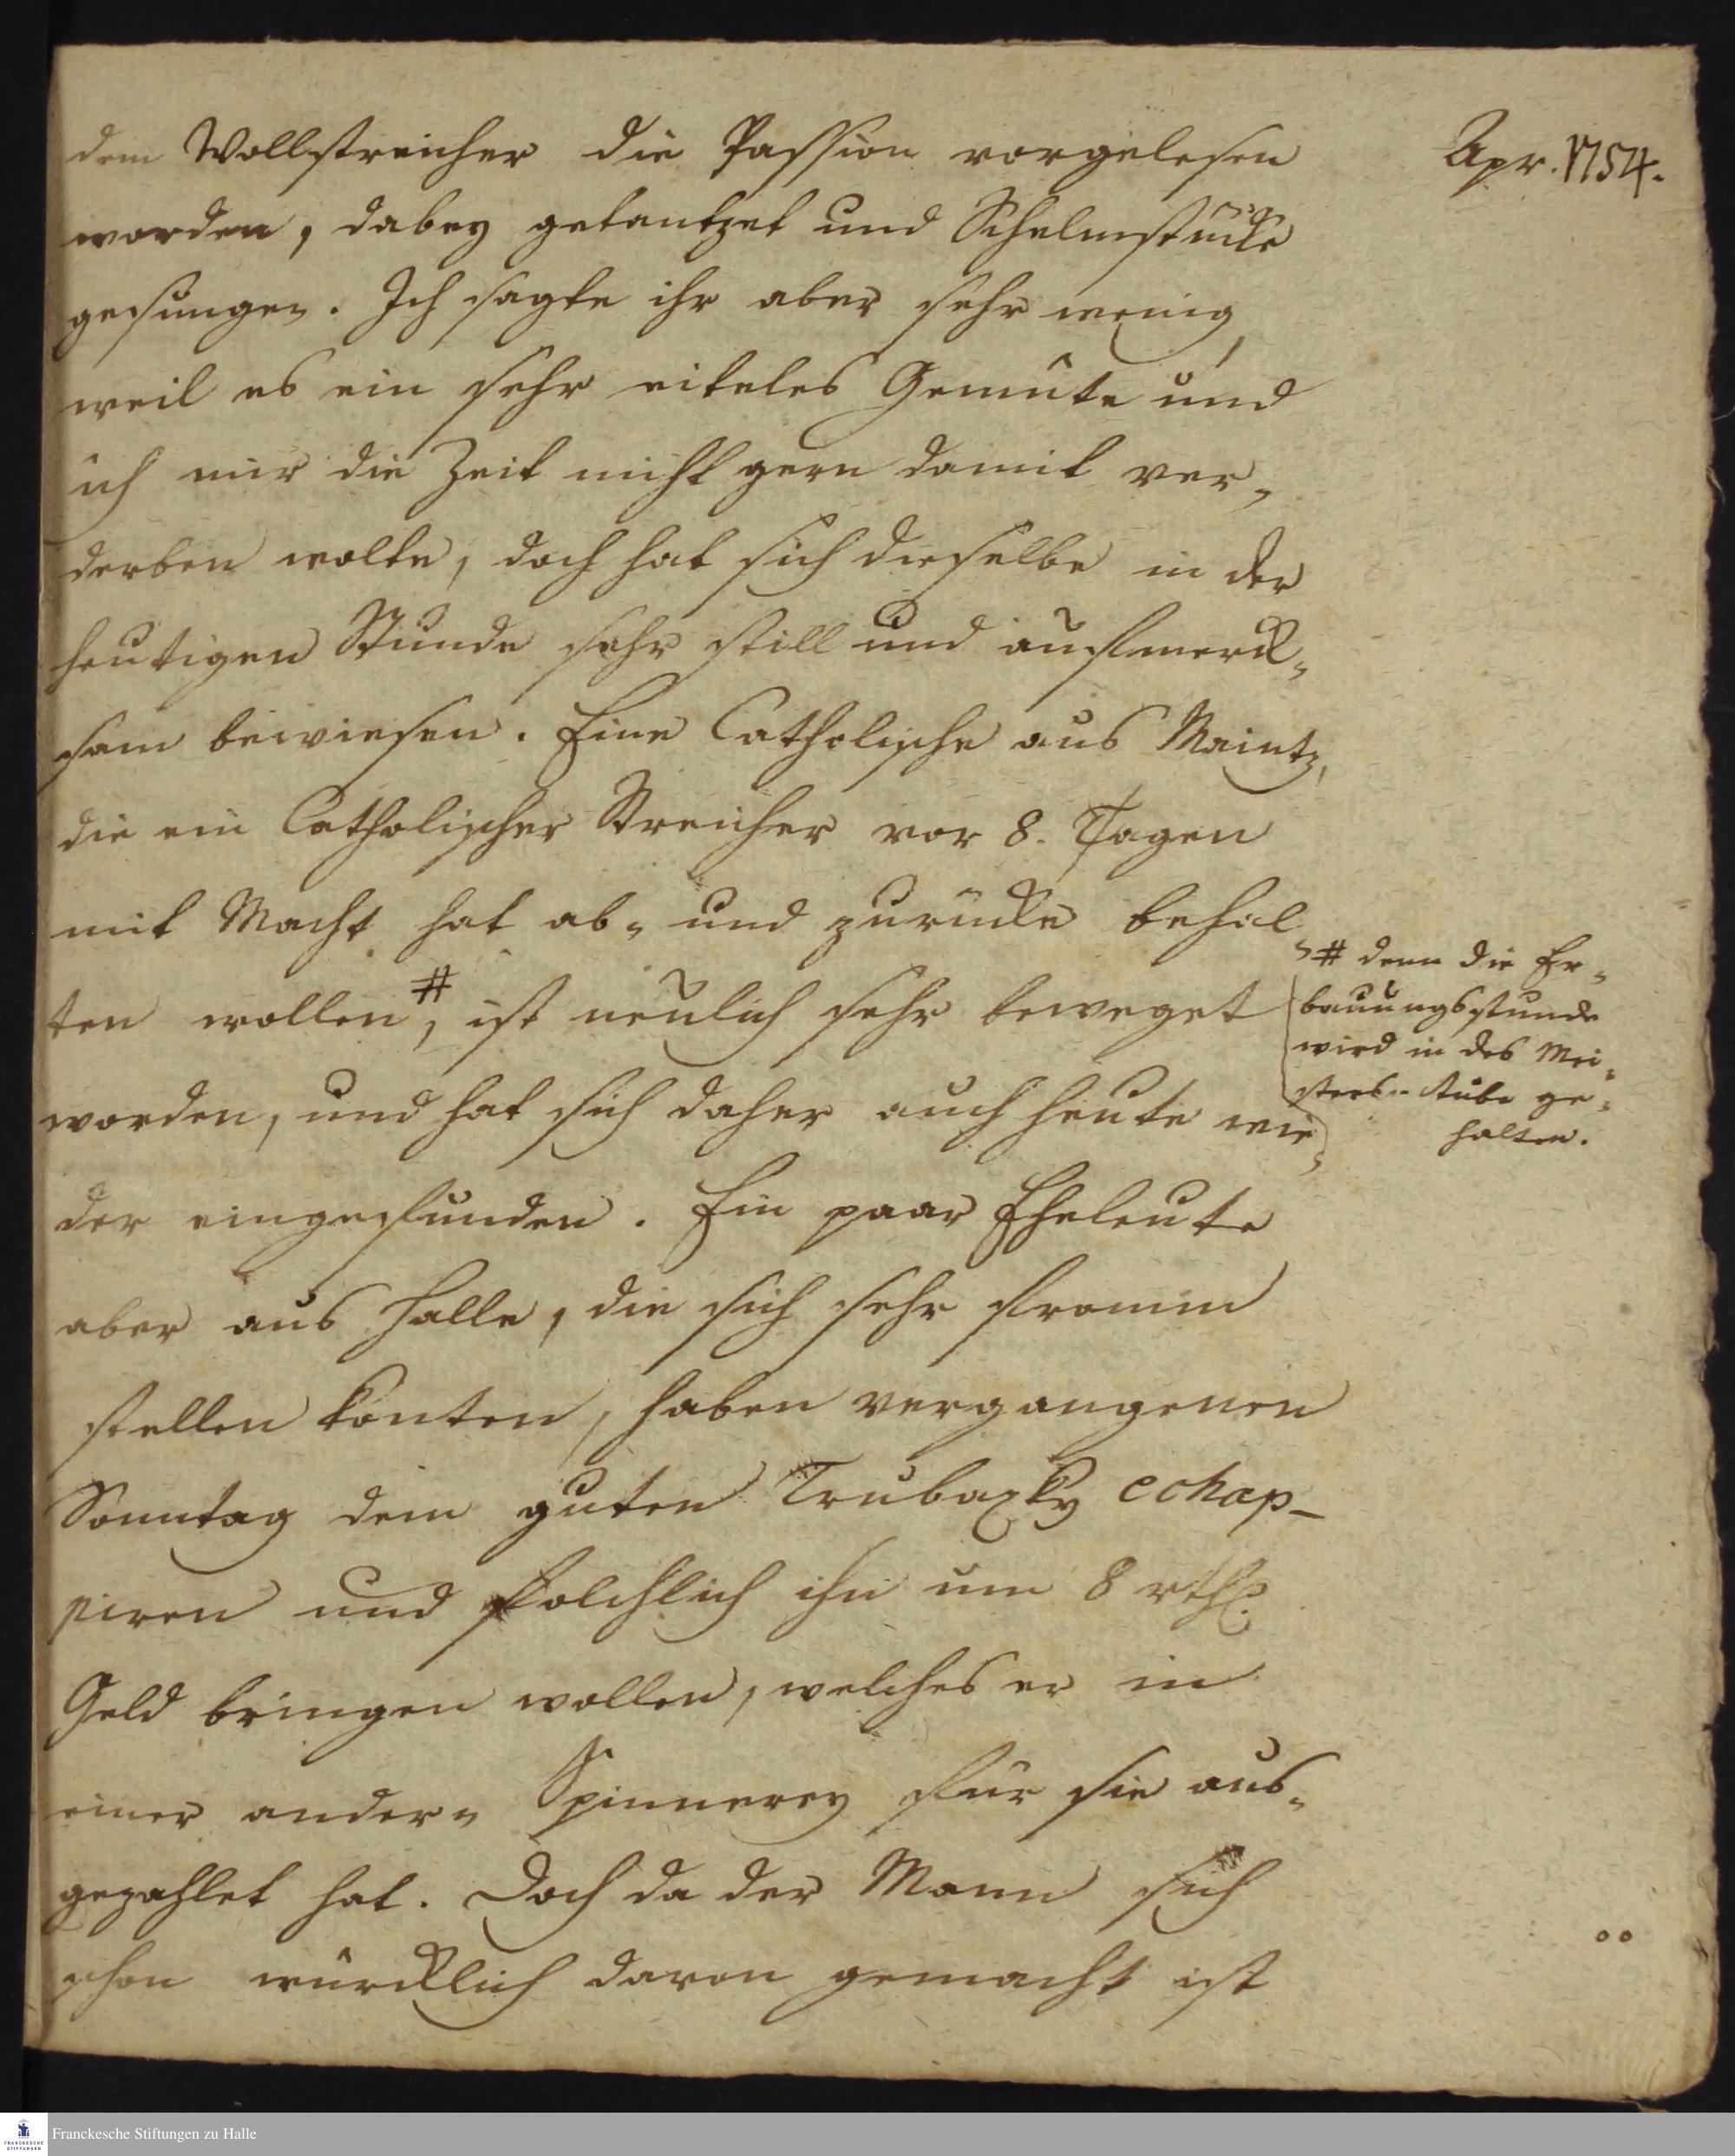 Apr. 1754.
dem Wollstreicher die Passion vorgelesen
worden, dabey getantzet und Schelmstücke
gesungen. Ich sagte ihr aber sehr wenig,
weil es ein sehr eiteles Gemüte und
ich mir die Zeit nicht gern damit ver-
derben wolte, doch hat sich dieselbe in der
heutigen Stunde sehr still und aufmerck-
sam bewiesen. Eine Catholische aus Maintz,
die ein Catholischer Streicher vor 8. Tagen
mit Macht hat ab- und zurücke behal-
ten wollen #, ist neulich sehr beweget
worden, und hat sich daher auch heute wie-
der eingefunden. Ein paar Eheleute
aber aus Halle, die sich sehr fromm
stellen konten, haben vergangenen
Sonntag dem guten Trubazky echap-
piren und folchlich ihn um 8 rthl.
Geld bringen wollen, welches er in
einer andern Spinnerey für sie aus-
gezahlet hat. Doch da der Mann sich
schon würcklich davon gemacht ist
# denn die Er-
bauungsstunde
wird in des Mei-
sters Stube ge-
halten.
Franckesche Stiftungen zu Halle
FRANCKESCHE
STIFTUNGEN